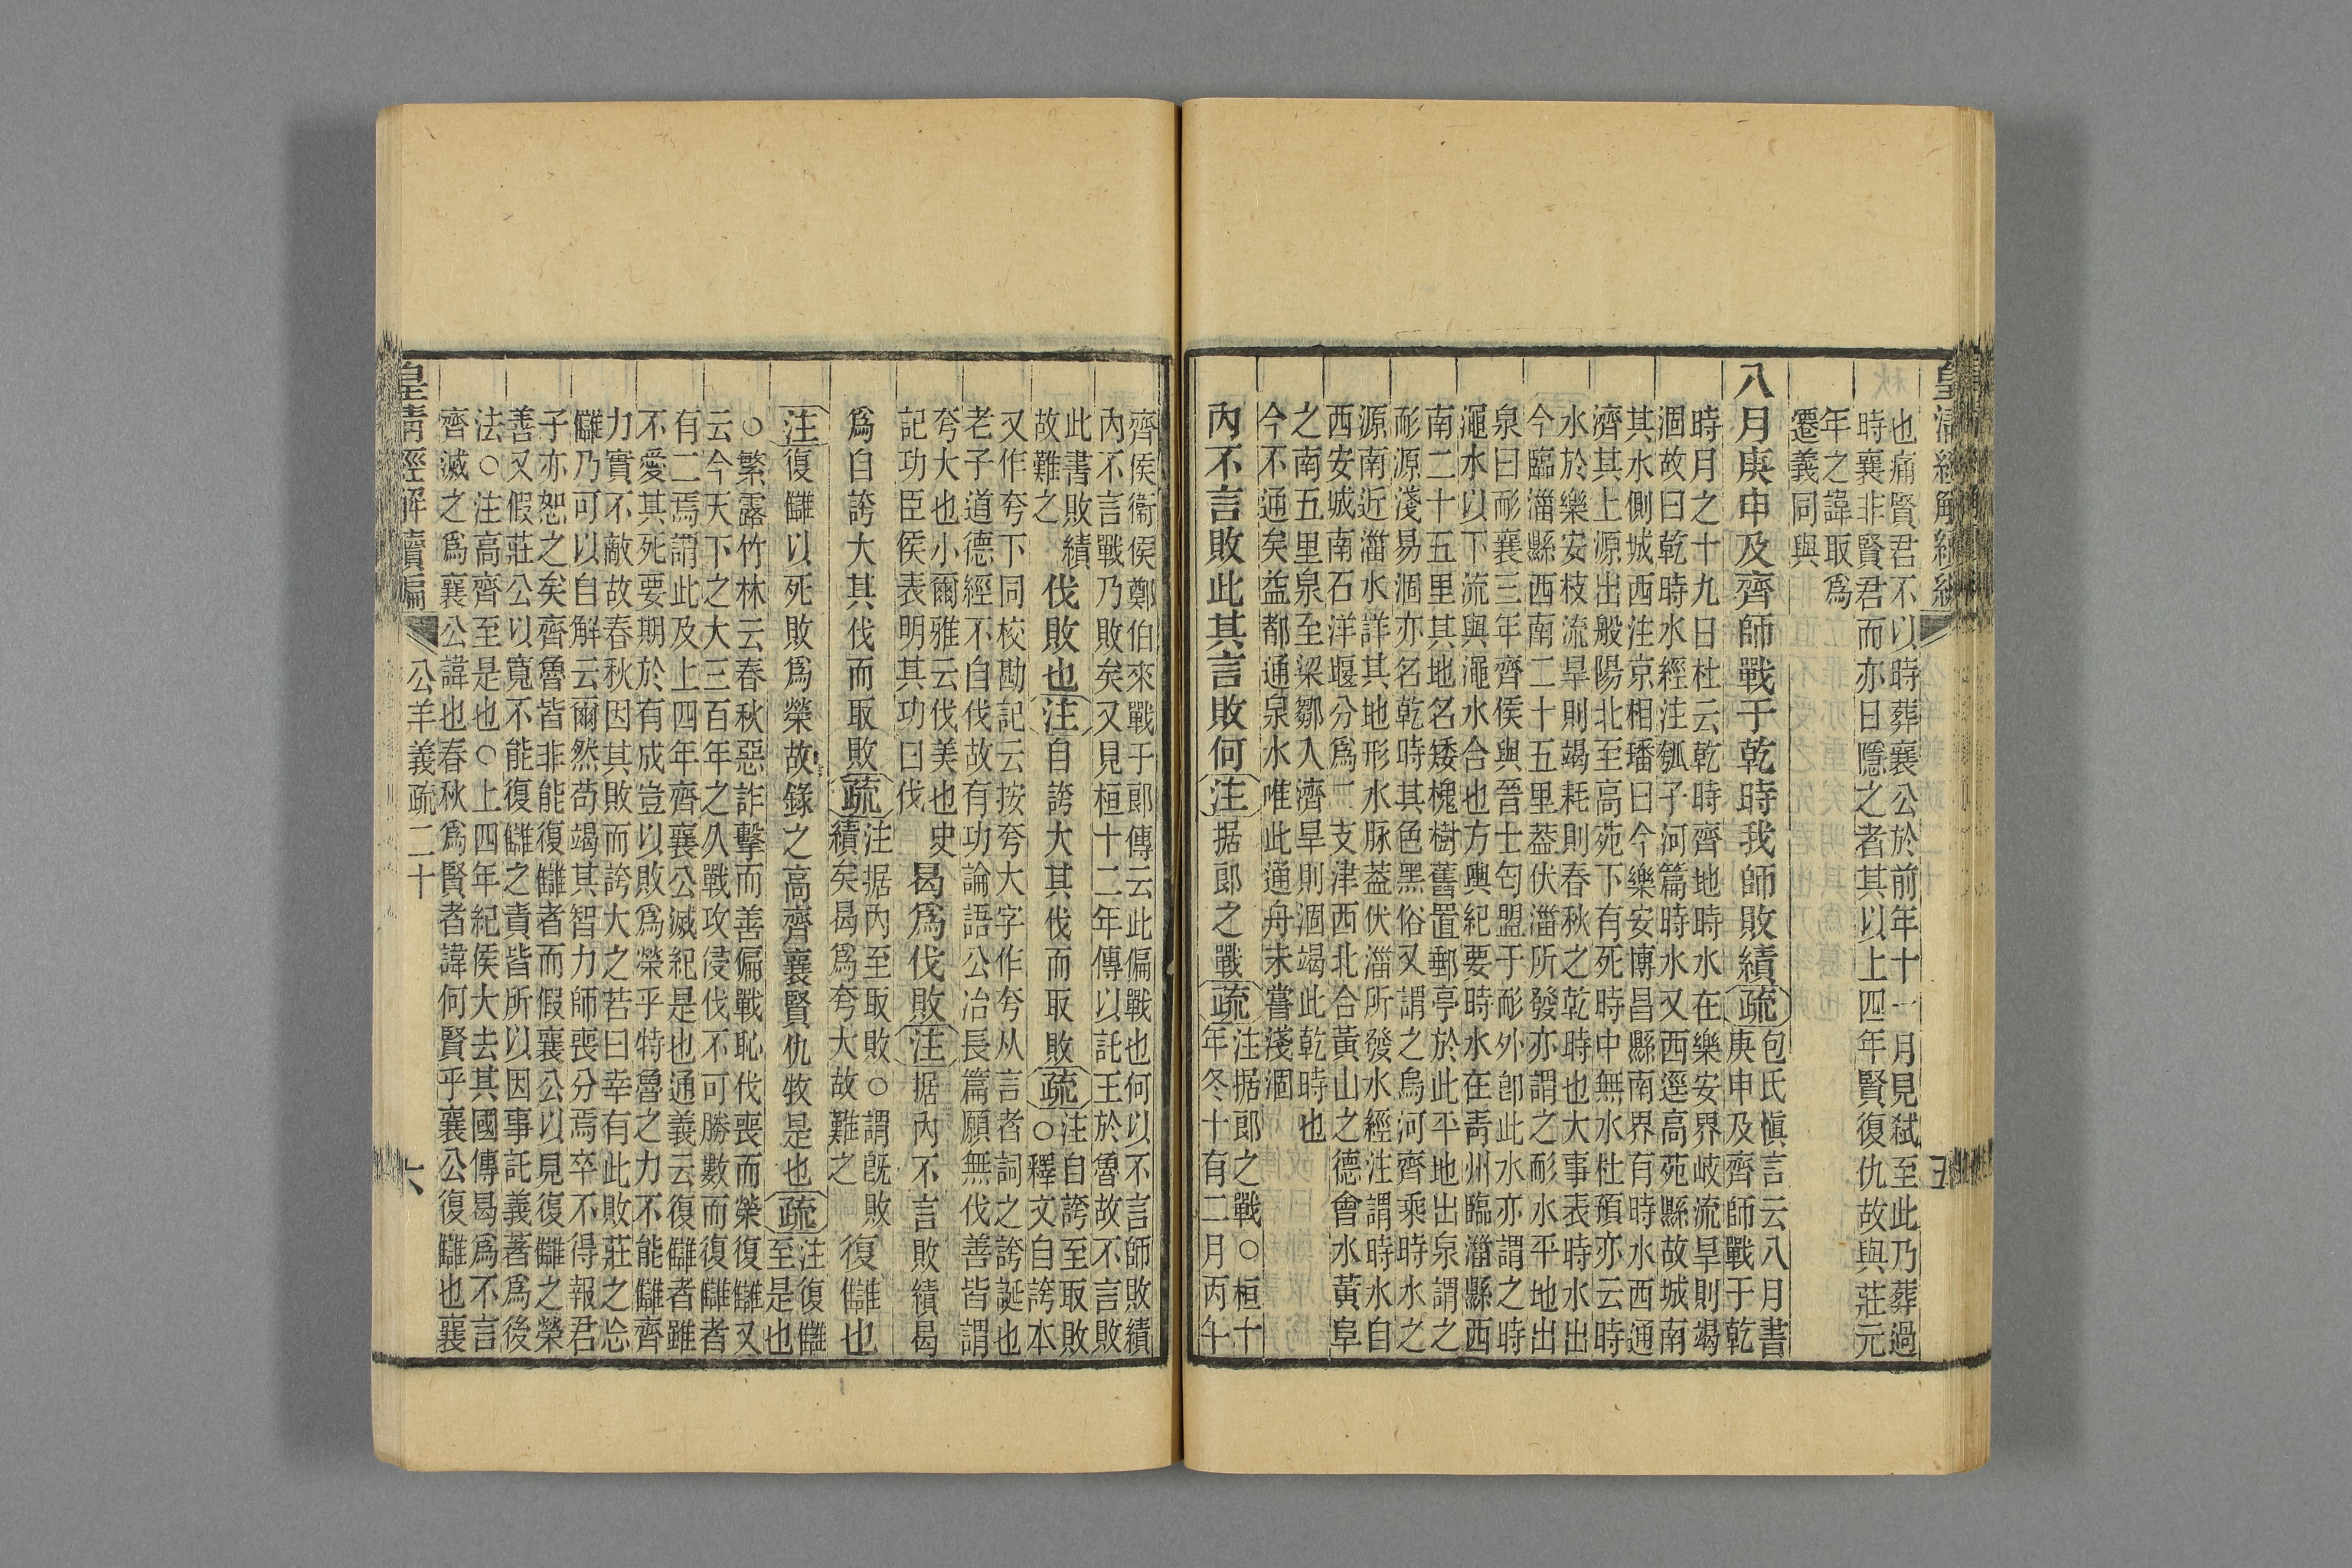 皇清經解續編
五
也痛賢君不以時葬襄公於前年十一月見弒至此乃葬過
時襄非賢君而亦日隱之者其以上四年賢復仇故與莊元
年之諱取爲
遷義同與
八月庚申及齊師戰于乾時我師敗績疏包氏愼言云八月書
庚申及齊師戰于乾
時月之十九日杜云乾時齊地時水在樂安界岐流旱則竭
涸故曰乾時水經注瓠子河篇時水又西逕高苑縣故城南
其水側城西注京相璠曰今樂安博昌縣南界有時水西通
濟其上源出般陽北至高苑下有死時中無水杜預亦云時
水於樂安枝流旱則竭耗則春秋之乾時也大事表時水出
今臨淄縣西南二十五里葢伏淄所發亦謂之耏水平地出
泉曰耏襄三年齊侯與晉士匄盟于耏外卽此水亦謂之時
澠水以下流與澠水合也方輿紀要時水在靑州臨淄縣西
南二十五里其地名矮槐樹舊置郵亭於此平地出泉謂之
耏源淺易涸亦名乾時其色黑俗又謂之烏河齊乘時水之
源南近淄水詳其地形水脉葢伏淄所發水經注謂時水自
西安城南石洋堰分爲二支津西北合黃山之德會水黃阜
之南五里泉至梁鄒入濟旱則涸竭此乾時也
今不通矣益都通泉水唯此通舟未嘗淺涸
內不言敗此其言敗何注据郎之戰疏注据郎之戰○桓十
年冬十有二月丙午
齊侯衞侯鄭伯來戰于郎傳云此偏戰也何以不言師敗績
內不言戰乃敗矣又見桓十二年傳以託王於魯故不言敗
此書敗績
故難之
伐敗也注自誇大其伐而取敗疏注自誇至取敗
○釋文自誇本
又作夸下同校勘記云按夸大字作夸从言者詞之誇誕也
老子道德經不自伐故有功論語公冶長篇願無伐善皆謂
夸大也小爾雅云伐美也史
記功臣侯表明其功曰伐
曷爲伐敗注据內不言敗績曷
爲自誇大其伐而取敗疏注据內至取敗○謂旣敗
績矣曷爲夸大故難之
復讎也
注復讎以死敗爲榮故錄之高齊襄賢仇牧是也疏注復讎
至是也
○繁露竹林云春秋惡詐擊而善偏戰恥伐喪而榮復讎又
云今天下之大三百年之久戰攻侵伐不可勝數而復讎者
有二焉謂此及上四年齊襄公滅紀是也通義云復讎者雖
不愛其死要期於有成豈以敗爲榮乎特魯之力不能讎齊
力實不敵故春秋因其敗而誇大之若曰幸有此敗莊之忘
讎乃可以自解云爾然苟竭其智力師喪分焉卒不得報君
子亦恕之矣齊魯皆非能復讎者而假襄公以見復讎之榮
善又假莊公以寬不能復讎之責皆所以因事託義著爲後
法○注高齊至是也○上四年紀侯大去其國傳曷爲不言
齊滅之爲襄公諱也春秋爲賢者諱何賢乎襄公復讎也襄
皇清經解續編
公羊義疏二十
六